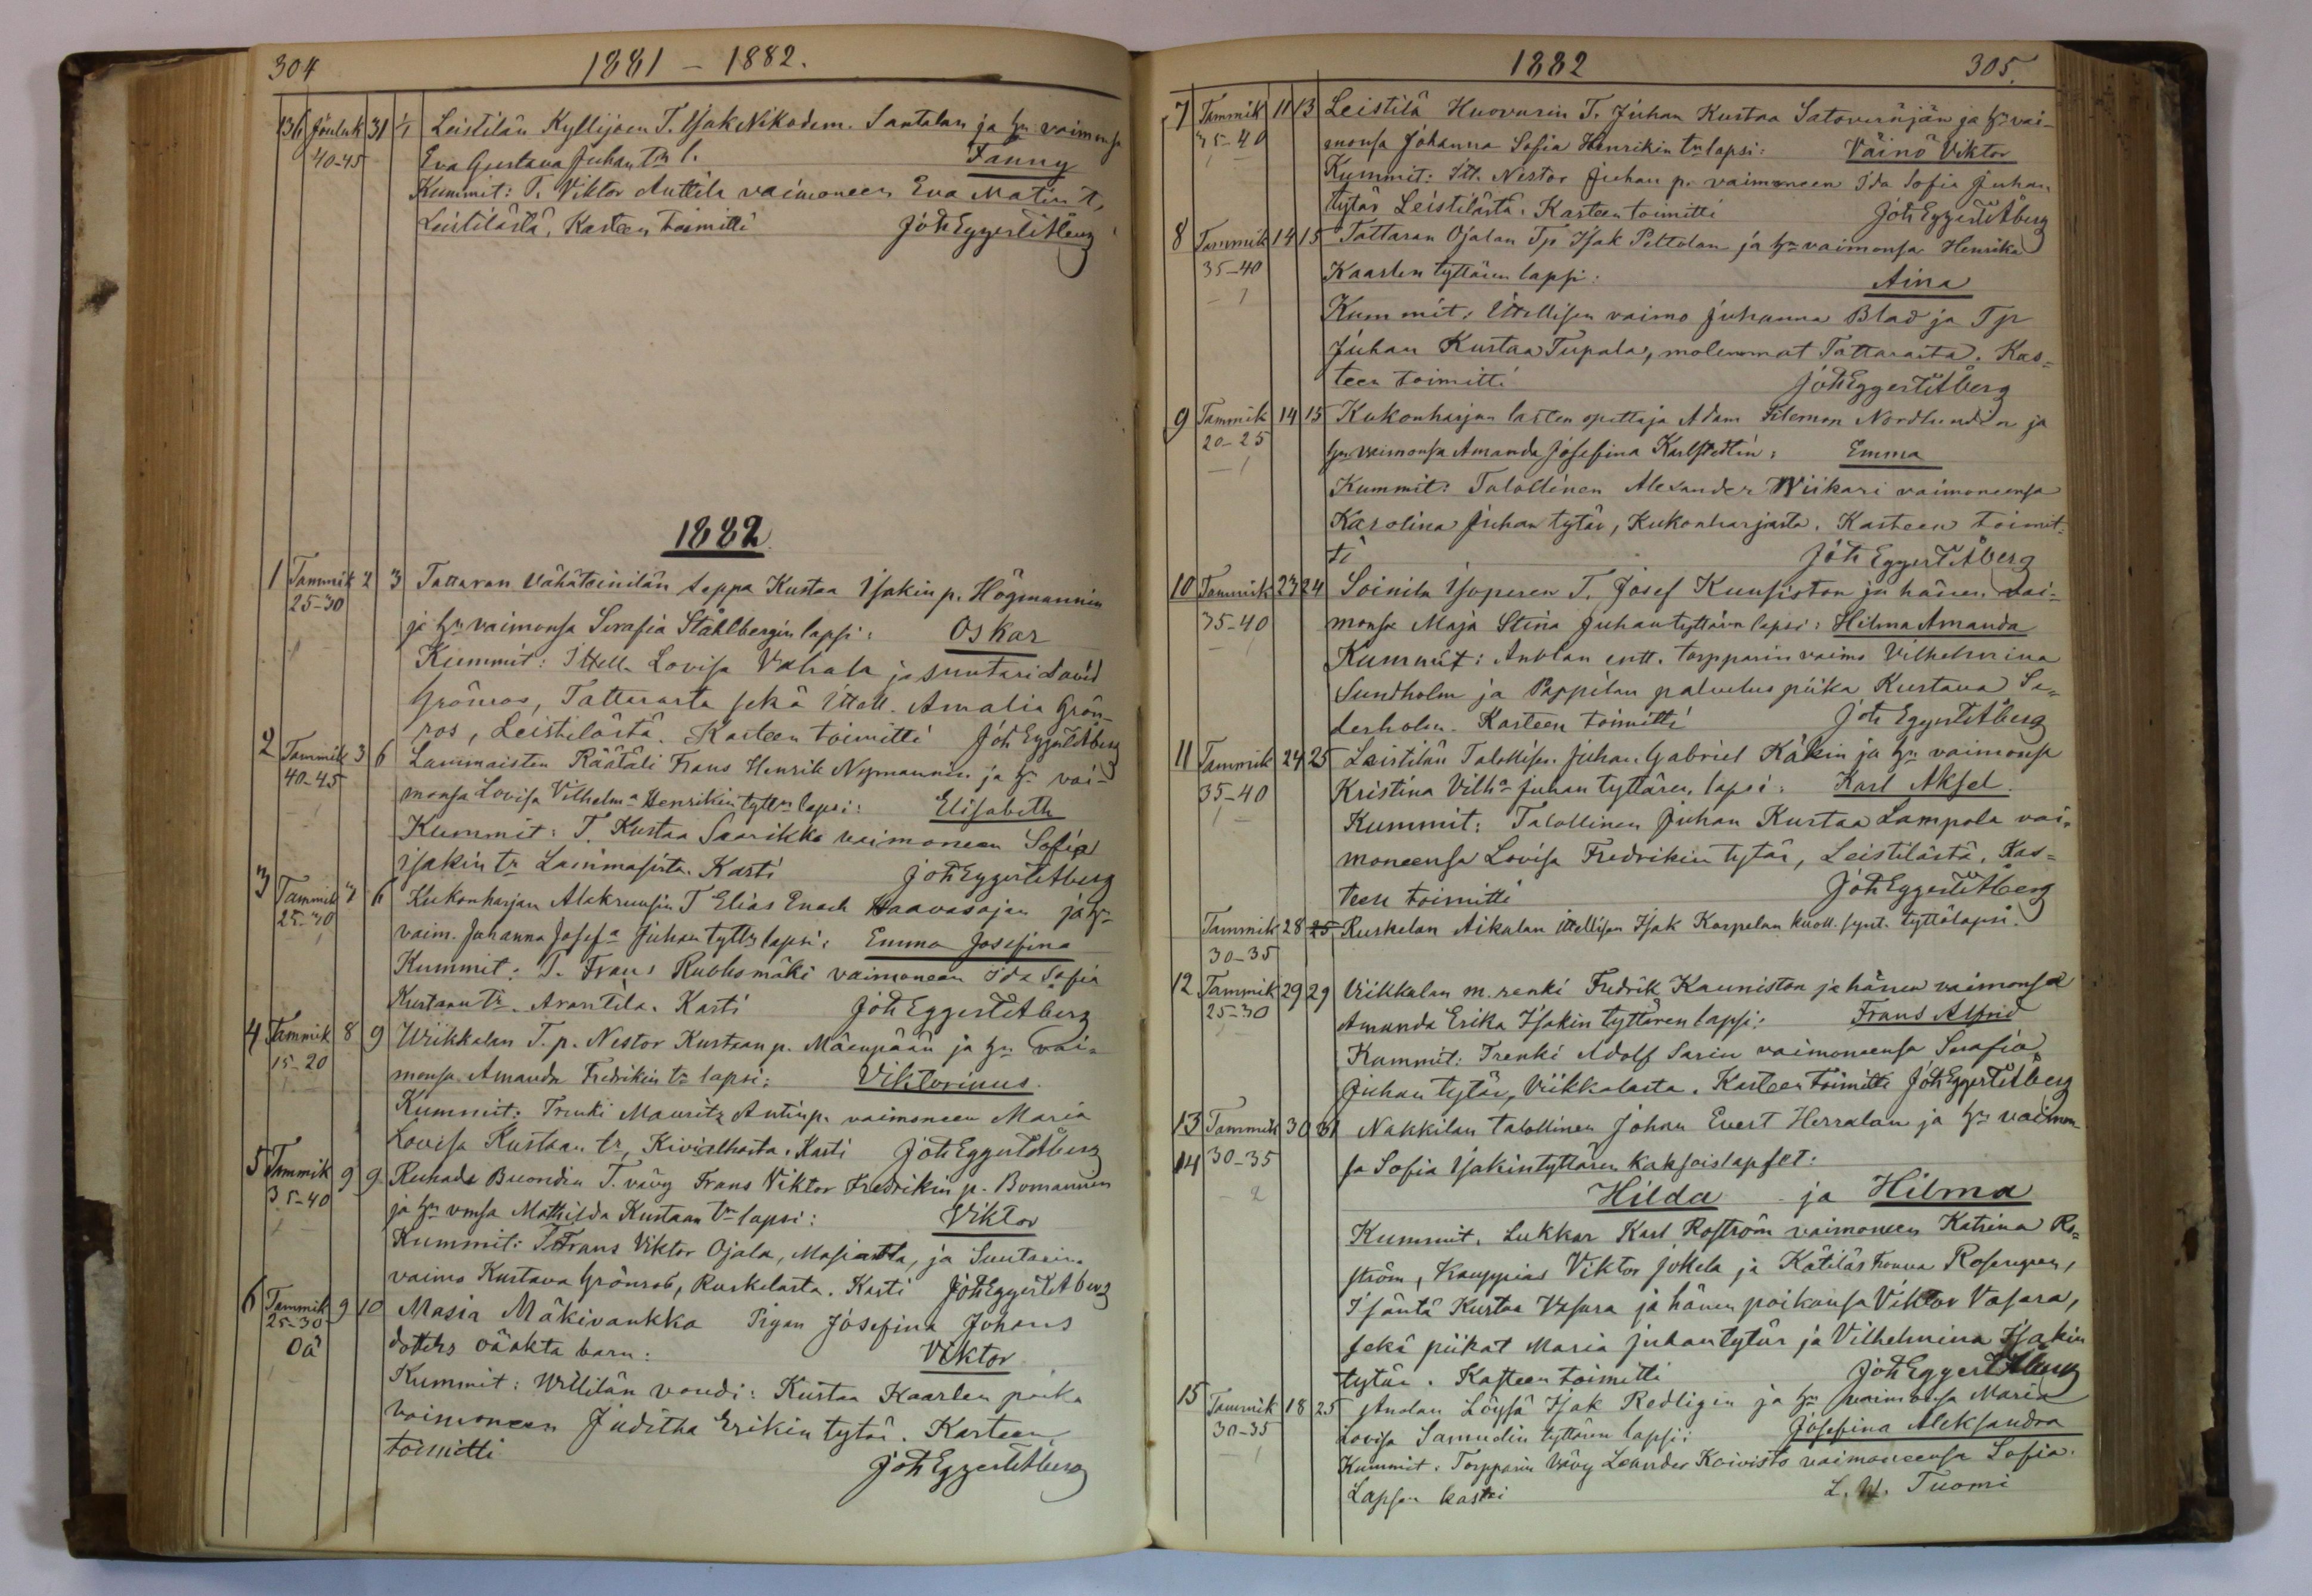 304
1881 – 1882.
136 Jouluk 31 1/1 Leistilän Kyllijoen T. Isak Nikodem. Santalan ja hn vaimonsa
40-45 Eva Gustava Juhan trn l. Fanny
Kummit: T. Viktor Anttila vaimoneen Eva Matin t.
Leistilästä. Kasteen toimitti Joh Eggert Åberg
1882.
1 Tammik 2 3 Tattaran Vähätainilän seppä Kustaa Isakin p. Högmannin
25-30 ja hn vaimonsa Serafia Ståhlbergin lapsi: Oskar
Kummit: Itell. Lovisa Vahala ja suutari David
Grönros, Tattarasta sekä Itell. Amalia Grön-
ros, Leistilästä. Kasteen toimitti Joh Eggert Åberg
2 Tammik 3 6 Lammaisten Räätäli Frans Henrik Nymannin ja hn vai-
40-45 monsa Lovisa Vilhelma Henrikin tyttrn lapsi: Elisabeth
Kummit: T. Kustaa Saarikko vaimoneen Sofia
Isakin tr Lammaisista. Kasti Joh Eggert Åberg
3 Tammik 3 6 Kukonharjan Alakruusin T Elias Enoch Haavasojan ja hn
25-30 vaim. Juhanna Josefa Juhan tyttr lapsi: Emma Josefina
Kummit: T. Frans Ruohomäki vaimoneen Ida Sofia
Kustaan tr. Arantila. Kasti Joh Eggert Åberg
4 Tammik 8 9 Wiikkalan T. p. Nestor Kustaan p. Mäenpään ja hn vai-
15-20 monsa Amanda Fredrikin tr lapsi: Viktorinus.
Kummit: Trenki Mauritz Antin p. vaimoneen Maria
Lovisa Kustaan tr, Kivialhosta. Kasti Joh Eggert Åberg
5 Tammik 9 9 Ruhade Buondin T. vävy Frans Viktor Fredrikin p. Bomannin
35-40 ja hn vmsa Mathilda Kustaan trn lapsi: Viktor
Kummit: T. Frans Viktor Ojala, Masiasta, ja Suutarin
vaimo Kustava Grönros, Ruskelasta. Kasti Joh Eggert Åberg
6 Tammik 9 10 Masia Mäkivankka Pigan Josefina Johans
25-30
Oä dotters oäakta barn: Viktor
Kummit: Willilän voudi: Kustaa Kaarlen poika
vaimoneen Juditha Erikin tytär. Kasteen
toimitti Joh Eggert Åberg
1882
305.
7 Tammik 11 13 Leistilä Huovarin T. Juhan Kustaa Satoveräjän ja hn vai-
35-40 monsa Johanna Sofia Henrikin trn lapsi: Väinö Viktor
Kummit: Itt. Nestor Juhan p. vaimoneen Ida Sofia Juhan
tytär Leistilästä. Kasteen toimitti Joh Eggert Åberg
8 Tammik 14 15 Tattaran Ojalan Tp Isak Peltolan ja hn vaimonsa Henrika
35-40 Kaarlen tyttären lapsi: Aina
Kummit: Itellisen vaimo Juhanna Blad ja Tp
Juhan Kustaa Tupala, molemmat Tattarasta. Kas-
teen toimitti Joh Eggert Åberg
9 Tammik 14 15 Kukonharjan lasten opettaja Adam Filemon Nordlundin ja
20-25 hn vaimonsa Amanda Josefina Karlstedtin: Emma
Kummit: Talollinen Alexander Wiikari vaimoneensa
Karolina Juhan tytär, Kukonharjasta. Kasteen toimit-
ti Joh Eggert Åberg
10 Tammik 23 24 Soinila Isoperen T. Josef Kuusiston ja hänen vai-
35-40 monsa Maja Stina Juhan tyttären lapsi: Hilma Amanda
Kummit: Anolan entt. torpparin vaimo Vilhelmina
Sundholm ja Pappilan palvelus piika Kustava Se-
derholm. Kasteen toimitti Joh Eggert Åberg
11 Tammik 24 25 Leistilän Talollisen Juhan Gabriel Käkin ja hn vaimonsa
35-40 Kristina Vilha Juhan tyttären lapsi: Karl Aksel.
Kummit: Talollinen Juhan Kustaa Lampola vai-
moneensa Lovisa Fredrikin tytär, Leistilästä. Kas-
teen toimitti Joh Eggert Åberg
Tammik 28 25 Ruskelan Aikalan itellisen Isak Karpelan kuoll. synt. tyttölapsi.
30-35
12 Tammik 29 29 Viikkalan m. renki Fredrik Kauniston ja hänen vaimonsa
25-30 Amanda Erika Isakin tyttären lapsi: Frans Alfrid
Kummit: Trenki Adolf Sarin vaimoneensa Serafia
Juhan tytär, Viikkalasta. Kasteen toimitti Joh Eggert Åberg
13 Tammik 30 31 Nakkilan talollinen Johan Evert Herralan ja hn vaimon-
14 30-35 sa Sofia Isakintyttären kaksoislapset:
2 Hilda ja Hilma
Kummit. Lukkar Karl Roström vaimoneen Katrina Ro-
ström, Kauppias Viktor Jokela ja Kätilös Rosengren,
Isäntä Kustaa Vasara ja hänen poikansa Viktor Vasara,
sekä piikat Maria Juhantytär ja Vilhelmina Isakin
tytär. Kasteen toimitti Joh Eggert Åberg
15 Tammik 18 25 Anolan Löysä Isak Redligin ja hn vaimonsa Maria
30-35 Lovisa Samuelin tyttären lapsi: Josefina Aleksandra
Kummit. Torpparin Vävy Leander Koivisto vaimoneensa Sofia.
Lapsen kastoi L. W. Tuomi